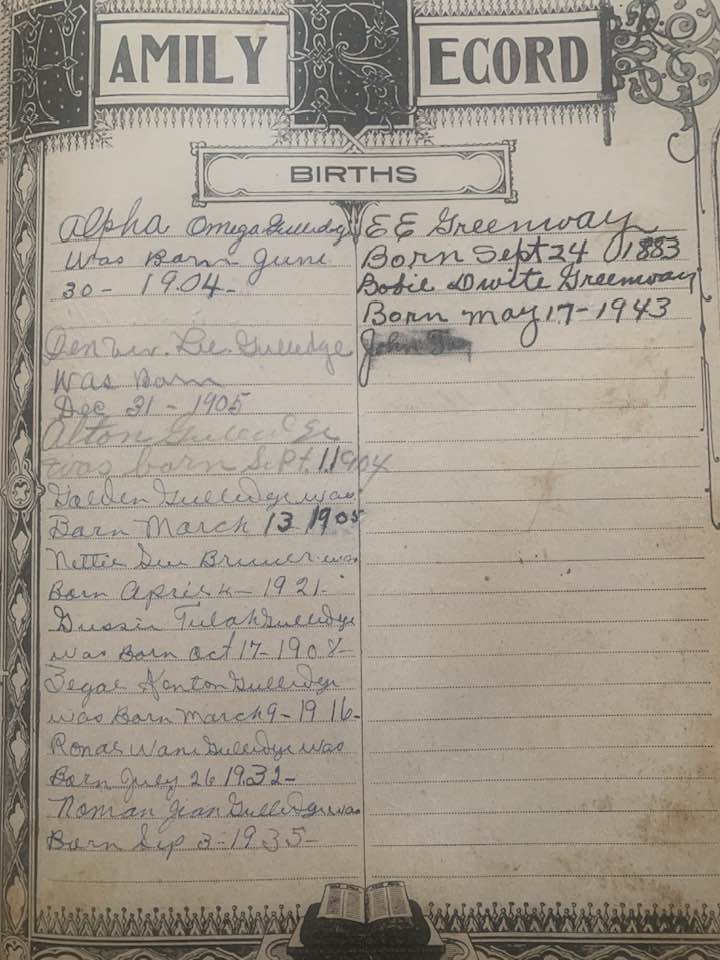 FAMILY RECORD
BIRTHS
Alpha Omega Gulledge
was Born June
30- 1904-
Denver Lee Gulledge
was Born
Dec 31 - 1905
Alton Gulledge
was born Sept. 1 1904
Golden Gulledge was
Born March 13 1905
Nettie Sue Bruner was
Born April 4 - 1921-
Gussie Tulah Gulledge
was Born Oct 17- 1908-
Segal Kenton Gulledge
was Born March 9- 1916-
Ronal Wane Gulledge was
Born July 26 1932-
Noman Jean Gulledge was
Born Sep 3-1935-
EE Greenway
Born Sept 24 1883
Bobie Dwite Greenway
Born May 17-1943
John